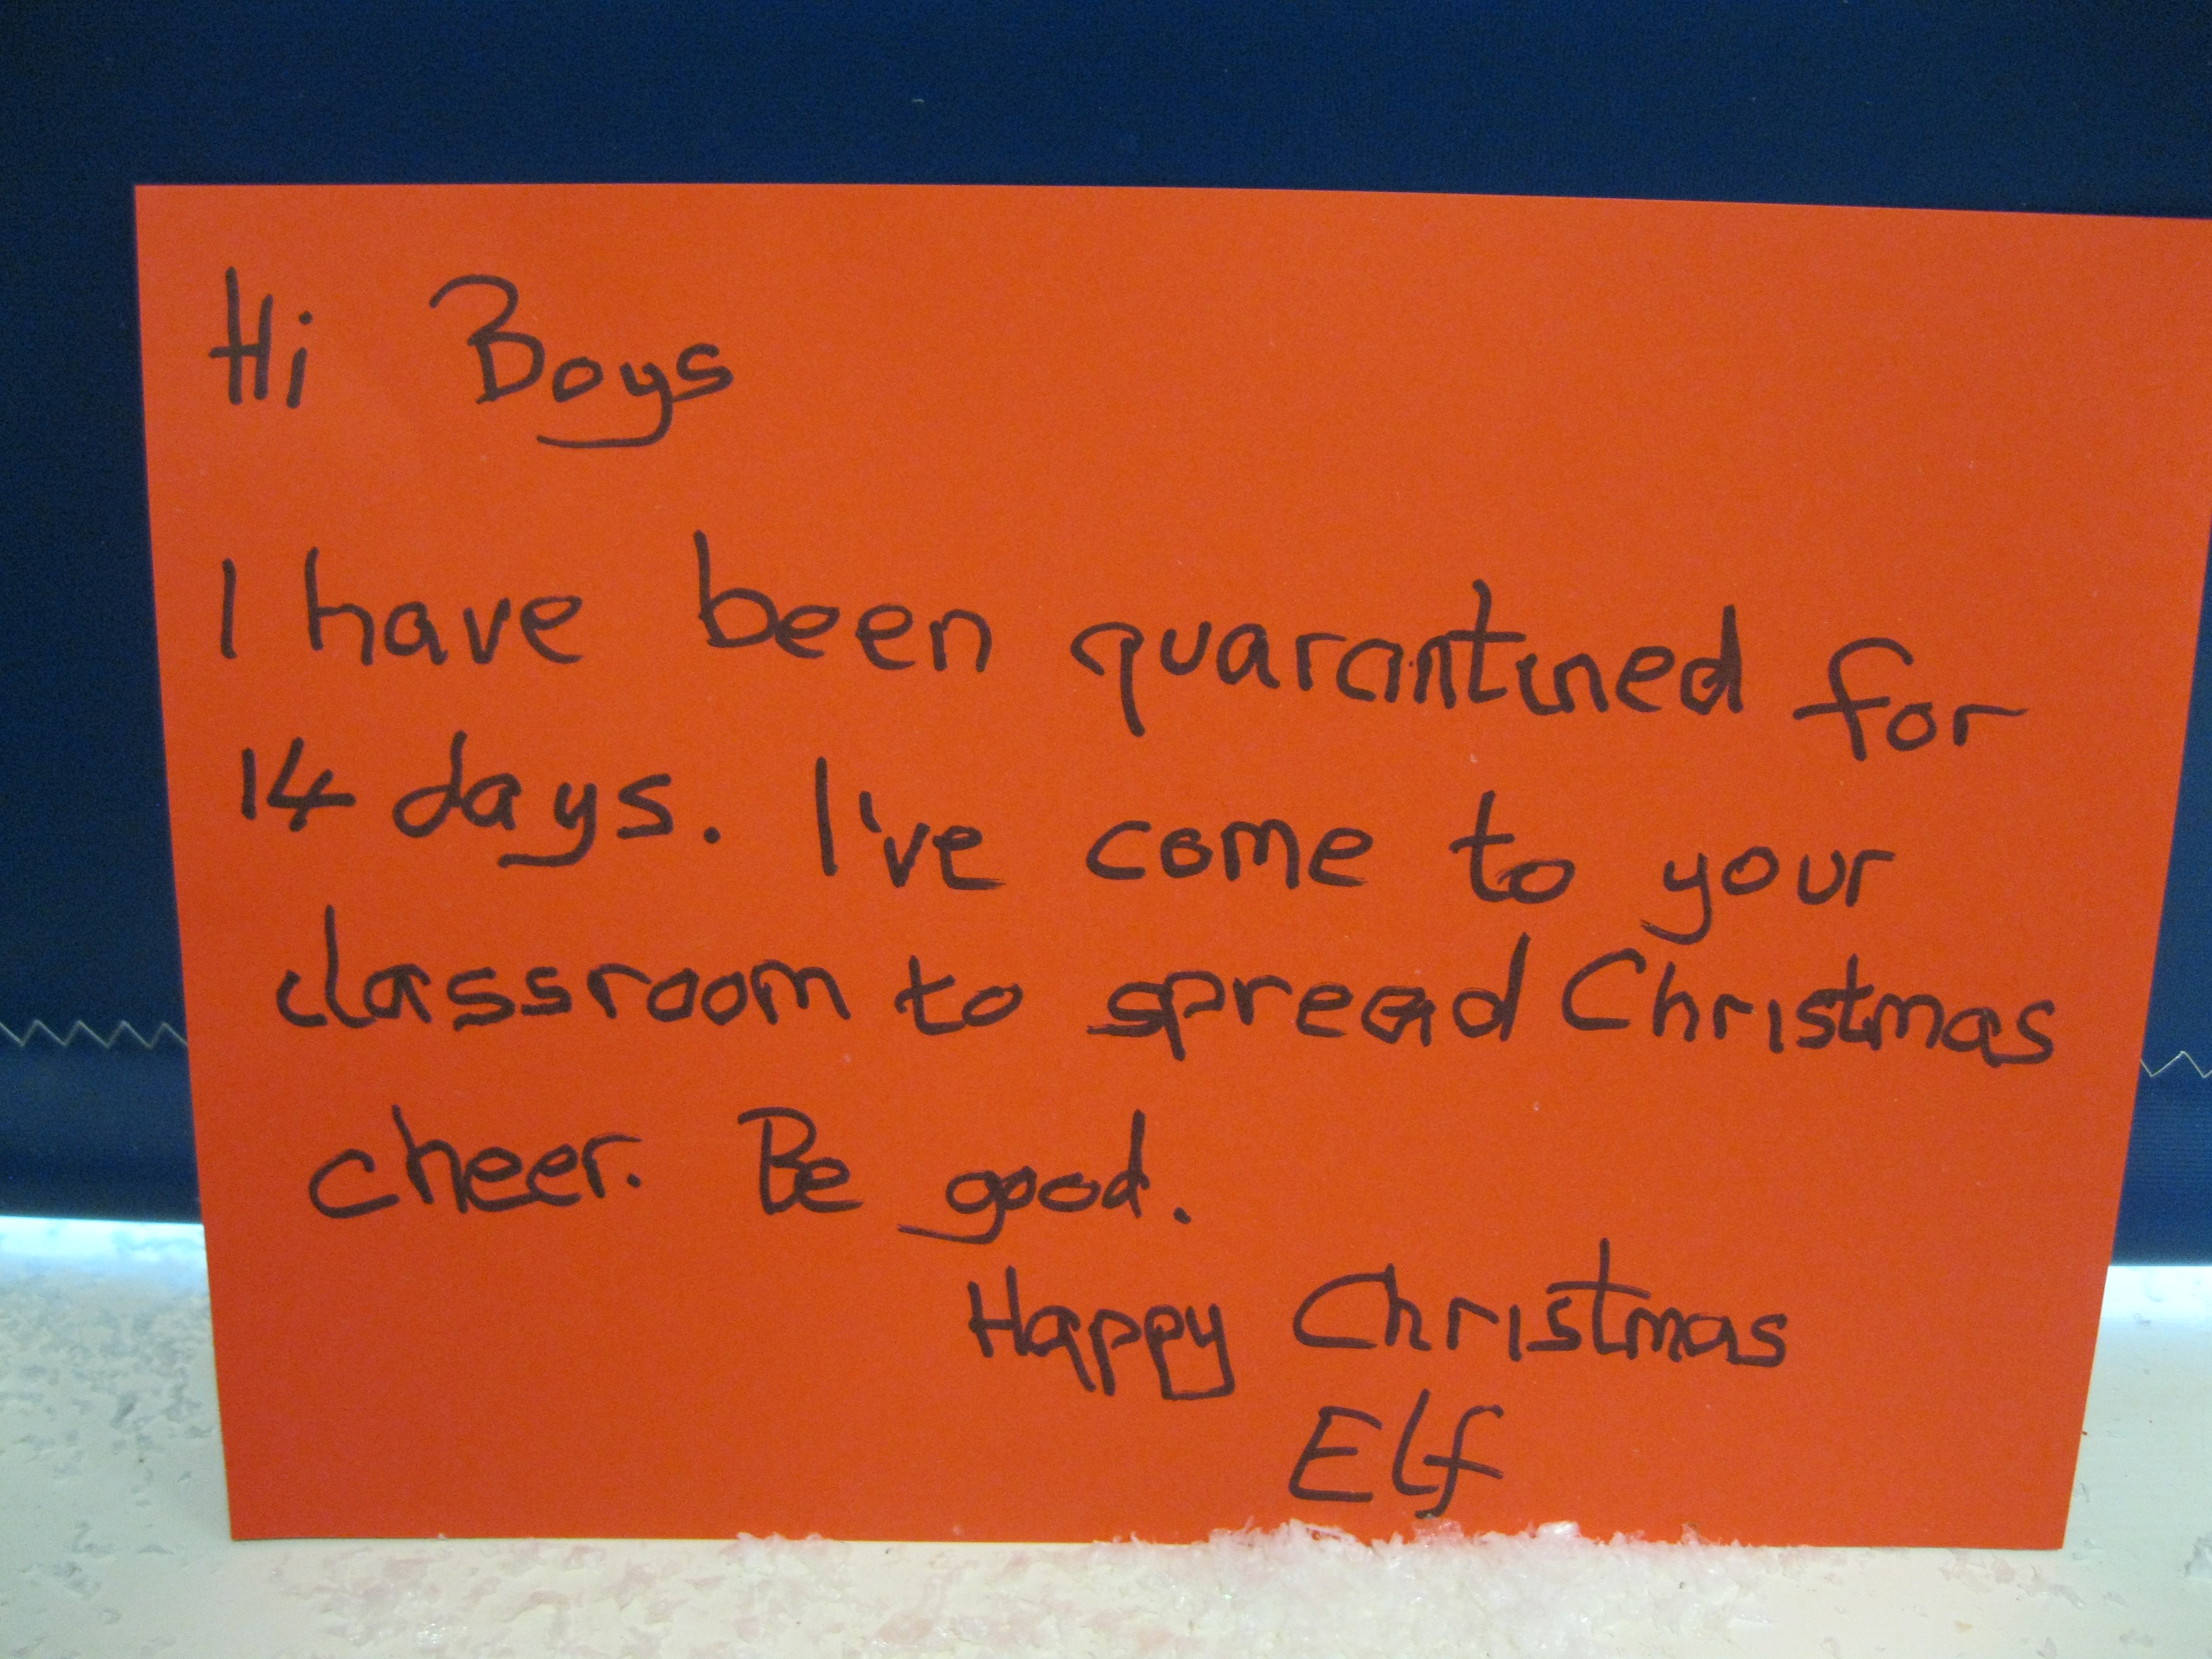 Hi Boys
I have been quarantined for
14 days. I've come to your
classroom to spread Christmas
cheer. Be good.
Happy Christmas
Elf